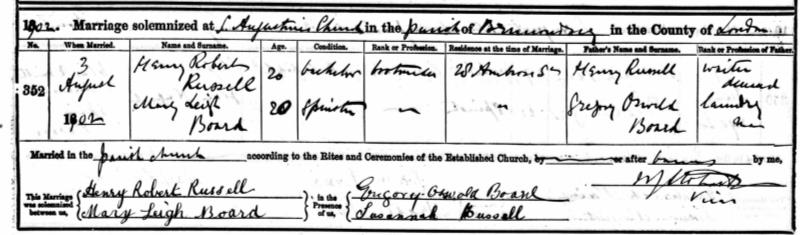 1902. Marriage solemnized at S. Augustine's Church in the parish of Bermondsey in the County of London
No. When Married. Name and Surname. Age. Condition. Rank or Profession. Residence at the time of Marriage. Father's Name and Surname. Rank or Profession of Father.
352
3 August 1902
Henry Robert Russell 20 bachelor bootmaker 28 Ambrose St Henry Russell waiter deceased
Mary Leigh Board 20 Spinster — " Gregory Oswald Board laundry man
Married in the parish church according to the Rites and Ceremonies of the Established Church, by or after banns by me,
This Marriage was solemnized between us, Henry Robert Russell in the Presence of us, Gregory Oswald Board
Mary Leigh Board Susannah Russell
Vicar